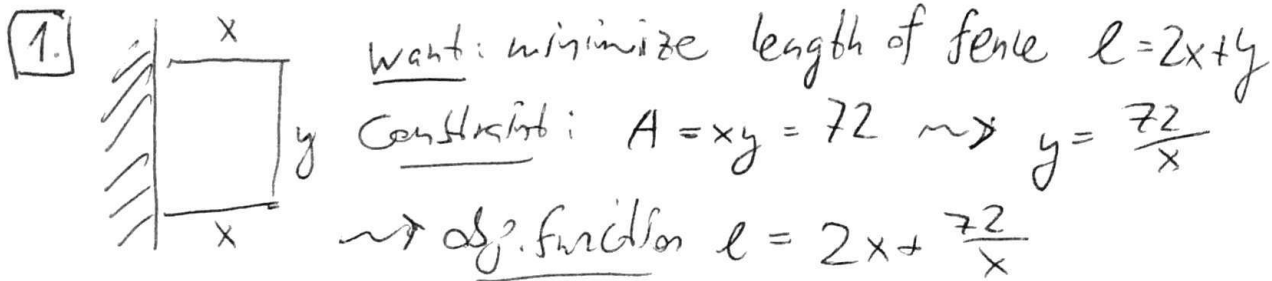 1.
x
want: minimize length of fence l = 2x+y
y Constraint: A = xy = 72 ~> y = 72/x
x
~> obj. function l = 2x + 72/x